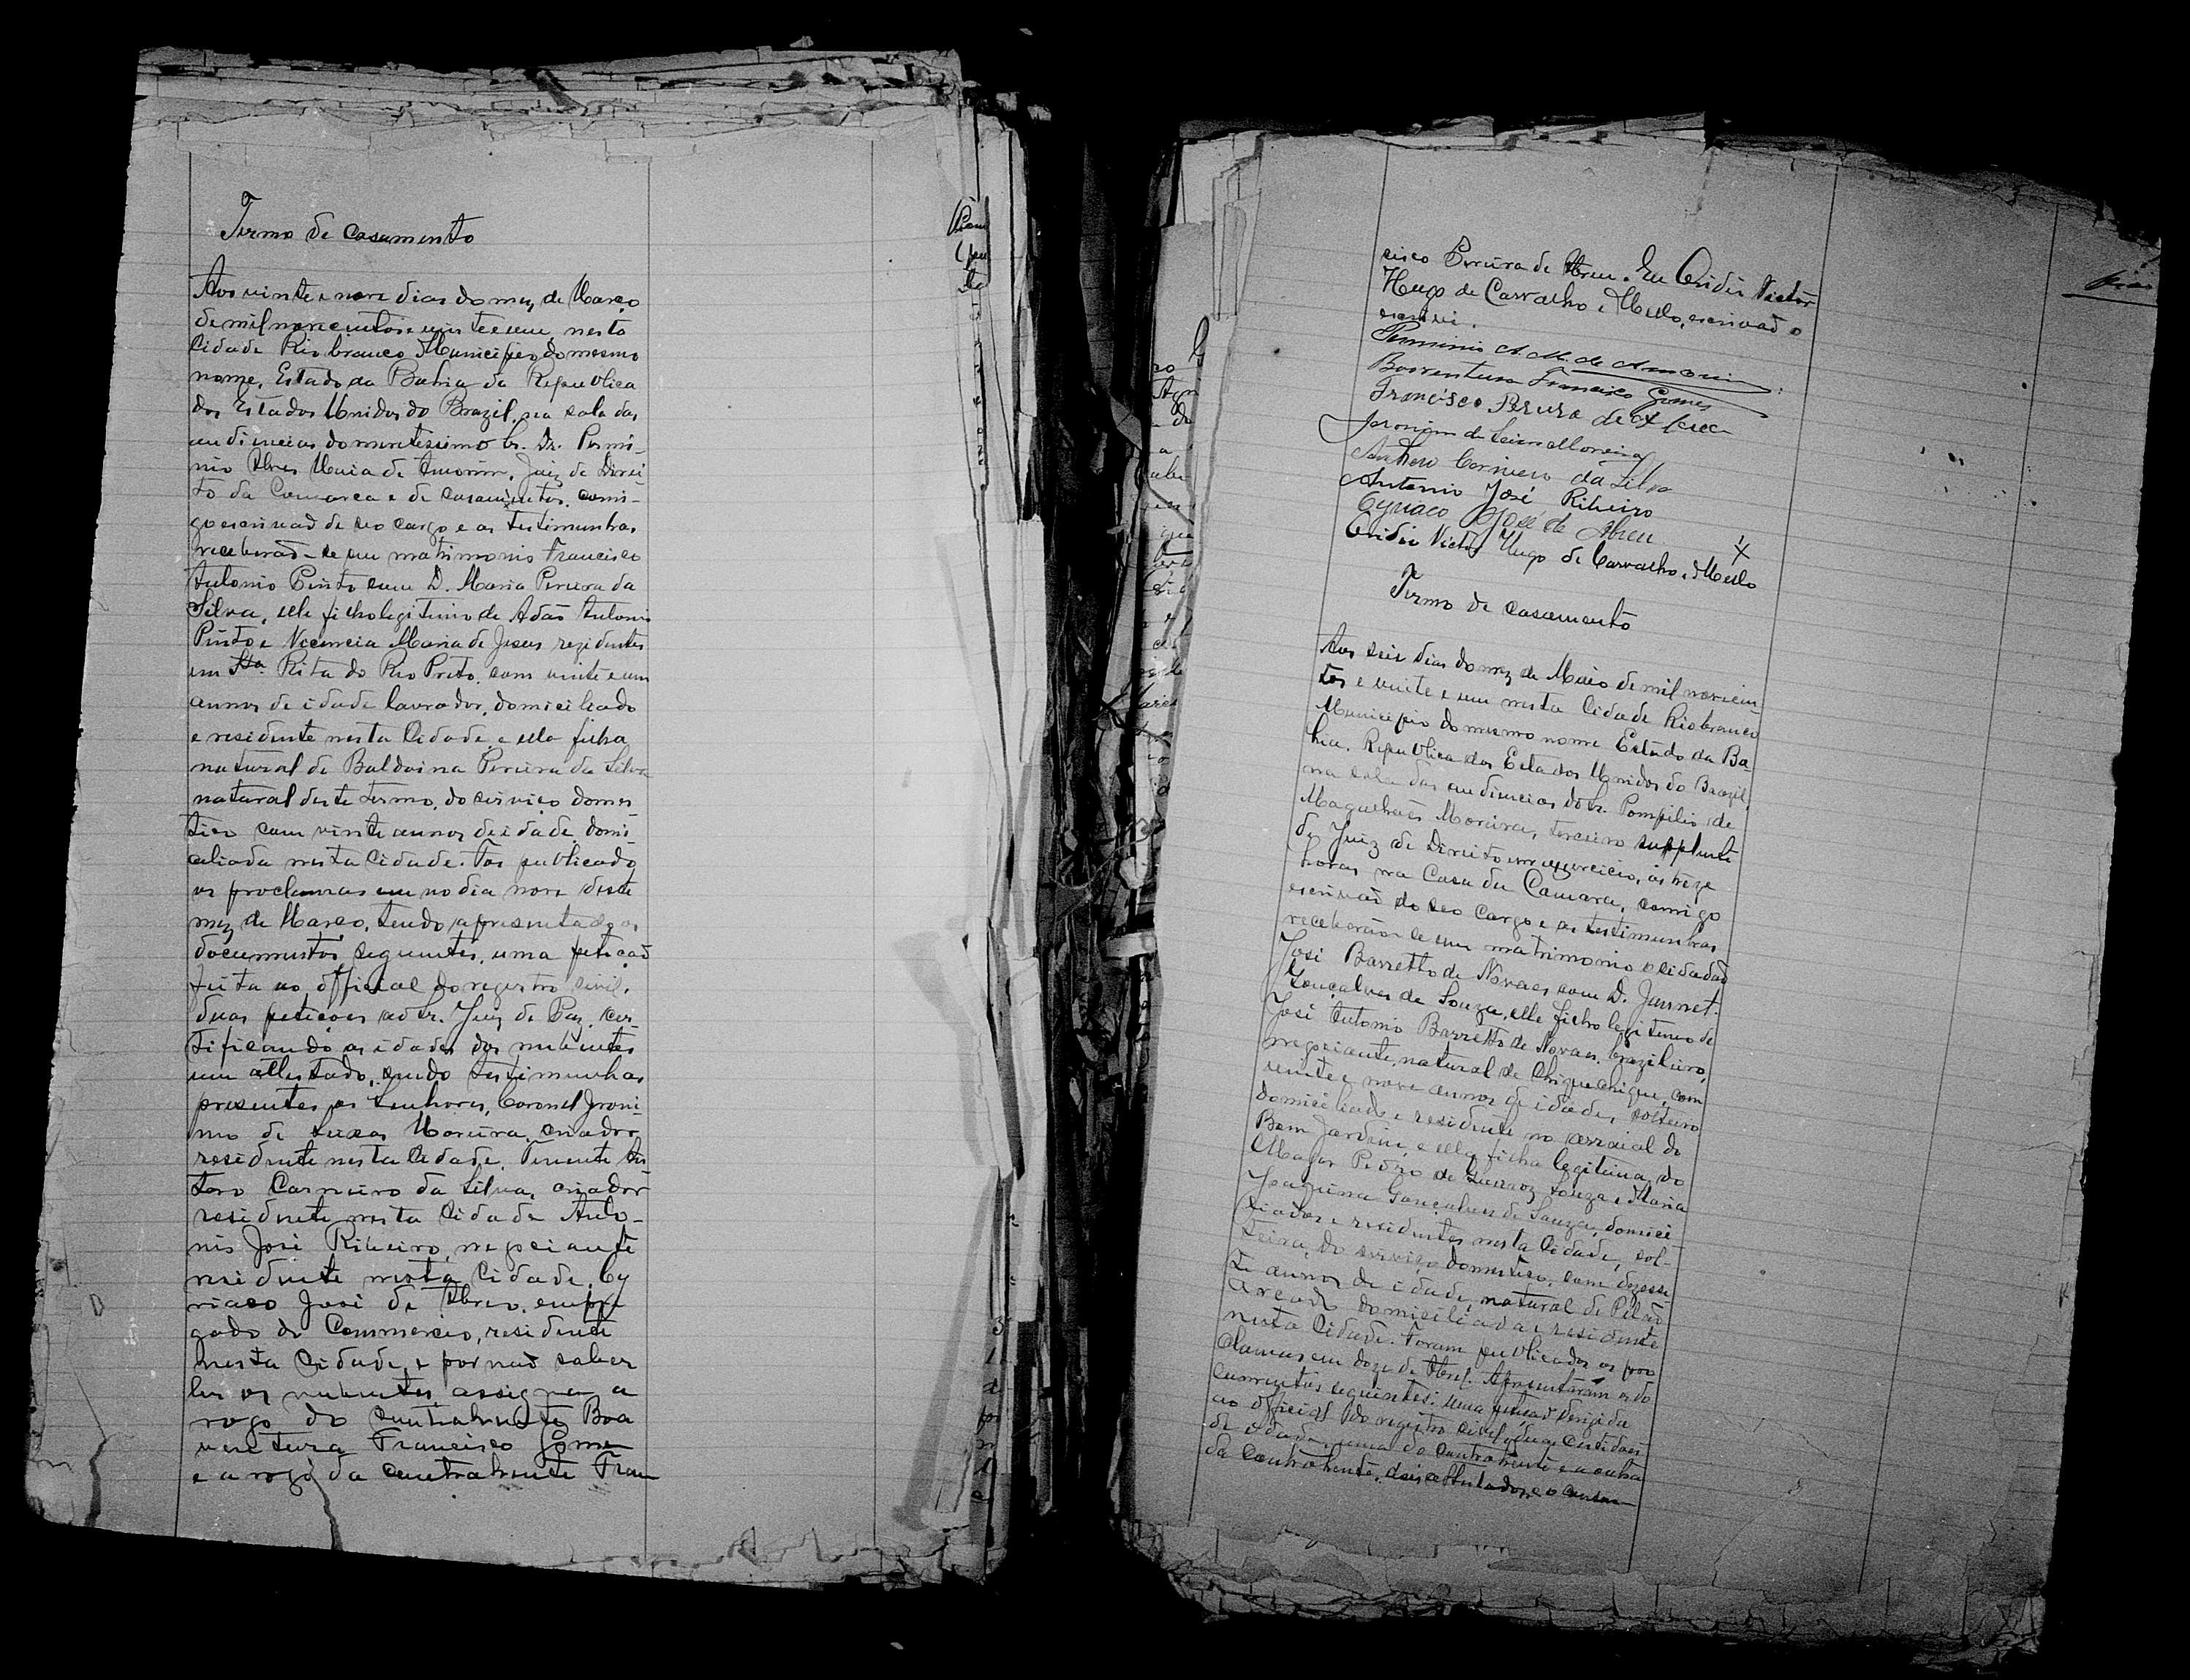 Termo de casamento
Aos vinte e nove dias do mez de Março
de mil novecentos e vinte e um, nesta
Cidade Rio branco Municipio do mesmo
nome, Estado da Bahia da Republica
dos Estados Unidos do Brazil, na sala das
audiencias do meretissimo Sr. Dr. Permi-
nio Alves Maia de Amorim, Juiz de Direi
to da Comarca e de casamentos, comi-
go escrivaõ de seo cargo e as testimunhas
receberaõ-se em matrimonio Francisco
Antonio Pinto com D. Maria Pereira da
Silva, elle filho legitimo de Adaõ Antonio
Pinto e Vicencia Maria de Jesus rezidentes
em Sta. Rita do Rio Preto, com vinte e um
annos de idade lavrador, domiciliado
e residente nesta Cidade, e ella filha
natural de Balduina Pereira da Silva
natural deste termo, do serviço domes
tico com vinte annos de idade, domi
ciliada nesta Cidade. Foi publicado
os proclamas em no dia nove deste
mez de Março, tendo apresentado os
documentos seguintes, uma petiçaõ
feita ao official do registro civil,
duas petiçoes ao Sr. Juiz de Paz, cer-
tificando as idades dos nubentes
um attestado, sendo testimunhas
presentes os senhores, Coronel Jroni-
mo de Moreira, criador
residente nesta Cidade, Tenente An
tero Carneiro da Silva, criador
residente nesta Cidade Anto-
nio José Ribeiro, negociante
residente nesta Cidade, Cy
riaco José de Abreu, empre
gado do Commercio, residente
nesta Cidade, e por naõ saber
ler os nubentes, assigna a
rogo do contrahente Boa
ventura Francisco Gomes
e a rogo da contrahente Fran
cisco Pereira de Abreu. Eu Ovidio Victor
Hugo de Carvalho e Mello, escrivaõ o
escrevi.
Perminio A. M. de Amorim
Boaventura Francisco Gomes
Francisco Pereira de Abreu
Jeronimo de Moreira
Anthero Carneiro da Silva
Antonio José Ribeiro
Cyriaco José de Abreu
Ovidio Victor Hugo de Carvalho e Mello
Termo de casamento
Aos seis dias do mez de Maio de mil novecen
tos e vinte e um nesta Cidade Rio branco
Municipio do mesmo nome Estado da Ba-
hia, Republica dos Estados Unidos do Brazil,
na sala das audiencias do Sr. Pompilio de
Magalhaẽs Moreira, terceiro supplente
do Juiz de Direito em exercicio, as treze
horas na Casa da Camara, comigo
escrivaõ do seo cargo e as testimunhas
receberão-se em matrimonio o cidadaõ
José Barretto de Novaes com D.
Gonçalves de Souza, elle filho legitimo de
José Antonio Barretto de Novaes, brazileiro,
negociante, natural de Chique Chique, com
vinte e nove annos de idade, solteiro
domiciliado e residente no arraial do
Bom Jardim, e ella filha legitima do
Major Pedro de Souza e Maria
Joaquina Gonçalves de Souza, domici
liados e residentes nesta Cidade, sol-
teira, do serviço domestico, com dezesse
te annos de idade, natural de Pilaõ
Arcado domiciliada e residente
nesta Cidade. Foram publicados os pro
clamas em doze de Abril. Apresentaram os do
cumentos seguintes: uma petiçaõ dirigida
ao official do registro civil, duas certidoẽs
de idade, uma do contrahente e a outra
da contrahente, dois attestados e o consen